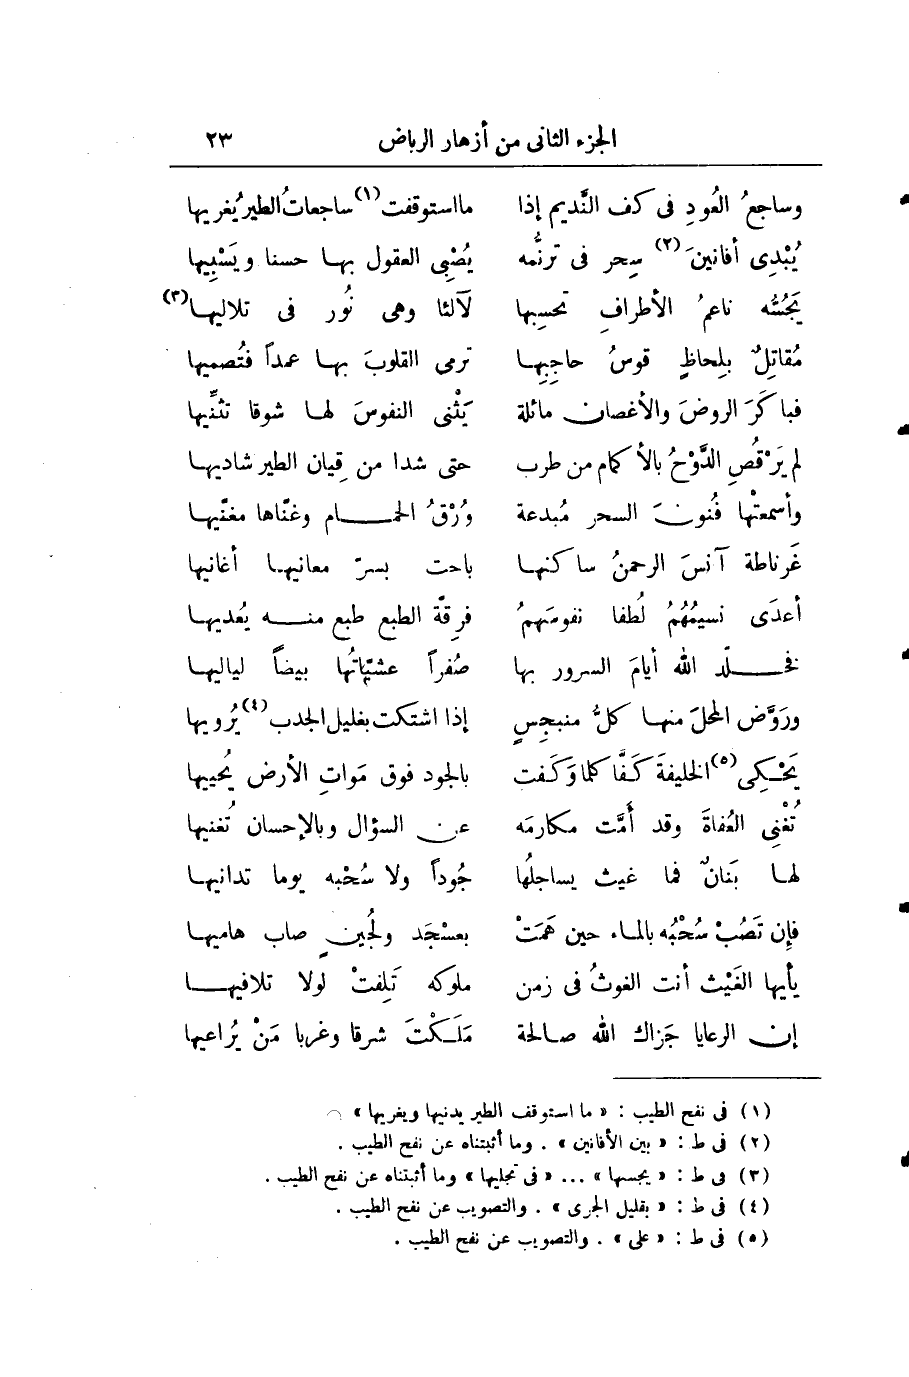 الجزء الثانى من أزهار الرياض ٢٣
وساجعُ العُودِ فى كف النَّديم إذا مااستوقفت(١) ساجعاتُ الطير يُغريها
يُبْدِى أفانينَ(٢) سِحر فى ترنُّمه يُصْبِى العقول بها حسنا ويَسْبِيها
يَجُسُّه ناعمُ الأطرافِ تحسِبها لَآلئا وهى نُور فى تلاليها(٣)
مُقاتِلٌ بلِحاظٍ قوسُ حاجبِها ترمى االقلوبَ بها عمداً فتُصميها
فباكَرَ الروضَ والأغصان مائلة يَثْنى النفوسَ لها شوقا تثنِّيها
لم يَرْقُصِ الدَّوْحُ بالأكمام من طرب حتى شدا من قِيان الطير شاديها
وأسمعتْها فُنونَ السحر مُبدعة وُرْقُ الحمام وغنّاها مغنّيها
غَرناطة آنسَ الرحمنُ ساكنها باحت بسرّ معانيها أغانيها
أعدَى نسيمُهُمُ لُطفا نفوسَهمُ فرِقَّة الطبع طبع منه يُعديها
فخلّد الله أيامَ السرور بها صُفراً عشيّاتُها بيضاً لياليها
وروَّض المحلَ منها كلُّ منبجِسٍ إذا اشتكت بغليل الجدب(٤) يُرويها
يَحْكِى(٥) الخليفةَ كَفًّا كلما وَكَفت بالجود فوق مَواتِ الأرض يُحييها
تُغْنِى العُفاةَ وقد أَمَّت مكارمَه عن السؤال وبالإحسان تُغنيها
لها بَنانٌ فما غيث يساجلُها جُوداً ولا سُحْبه يوما تدانيها
فإن تَصُبْ سُحْبُه بالماء حين هَمَتْ بعسْجَد ولُجينٍ صاب هاميها
يأيها الغَيْث أنت الغوثُ فى زمن ملوكه تَلِفتْ لولا تلافيها
إن الرعايا جَزاك الله صالحة مَلَكْتَ شرقا وغربا مَنْ يُراعيها
(١) فى نفح الطيب : « ما استوقف الطير يدنيها ويغريها »
(٢) فى ط : « بين الأفانين » . وما أثبتناه عن نفح الطيب .
(٣) فى ط : « يجسها » ... « فى تجليها » وما أثبتناه عن نفح الطيب .
(٤) فى ط : « بقليل الجرى » . والتصويب عن نفح الطيب .
(٥) فى ط : « على » . والتصويب عن نفح الطيب .